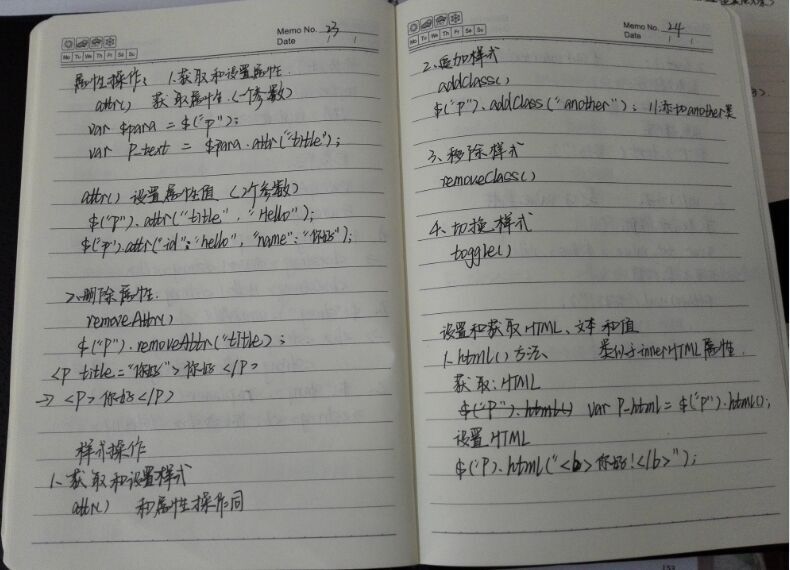 Memo No. 23
Mo Tu We Th Fr Sa Su
Date / /
属性操作: 1.获取和设置属性.
attr() 获取属性.(一个参数)
var $para = $("p");
var p_text = $para.attr("title");
attr() 设置属性值 (2个参数)
$("p").attr("title", "Hello");
$("p").attr("id":"hello", "name":"你好");
2.删除属性.
removeAttr()
$("p").removeAttr("title);
<p title="你好"> 你好 </p>
→ <p> 你好 </p>
样式操作
1.获取和设置样式
attr() 和属性操作同
Memo No. 24
Mo Tu We Th Fr Sa Su
Date / /
2.追加样式
addClass()
$("p").addClass("another"); //添加another类
3、移除样式
removeClass()
4、切换样式
toggle()
设置和获取HTML、文本和值
1.html()方法、 类似于innerHTML属性.
获取:HTML
$("p").html() var p_html = $("p").html();
设置HTML
$("p).html("<b> 你好!</b>");